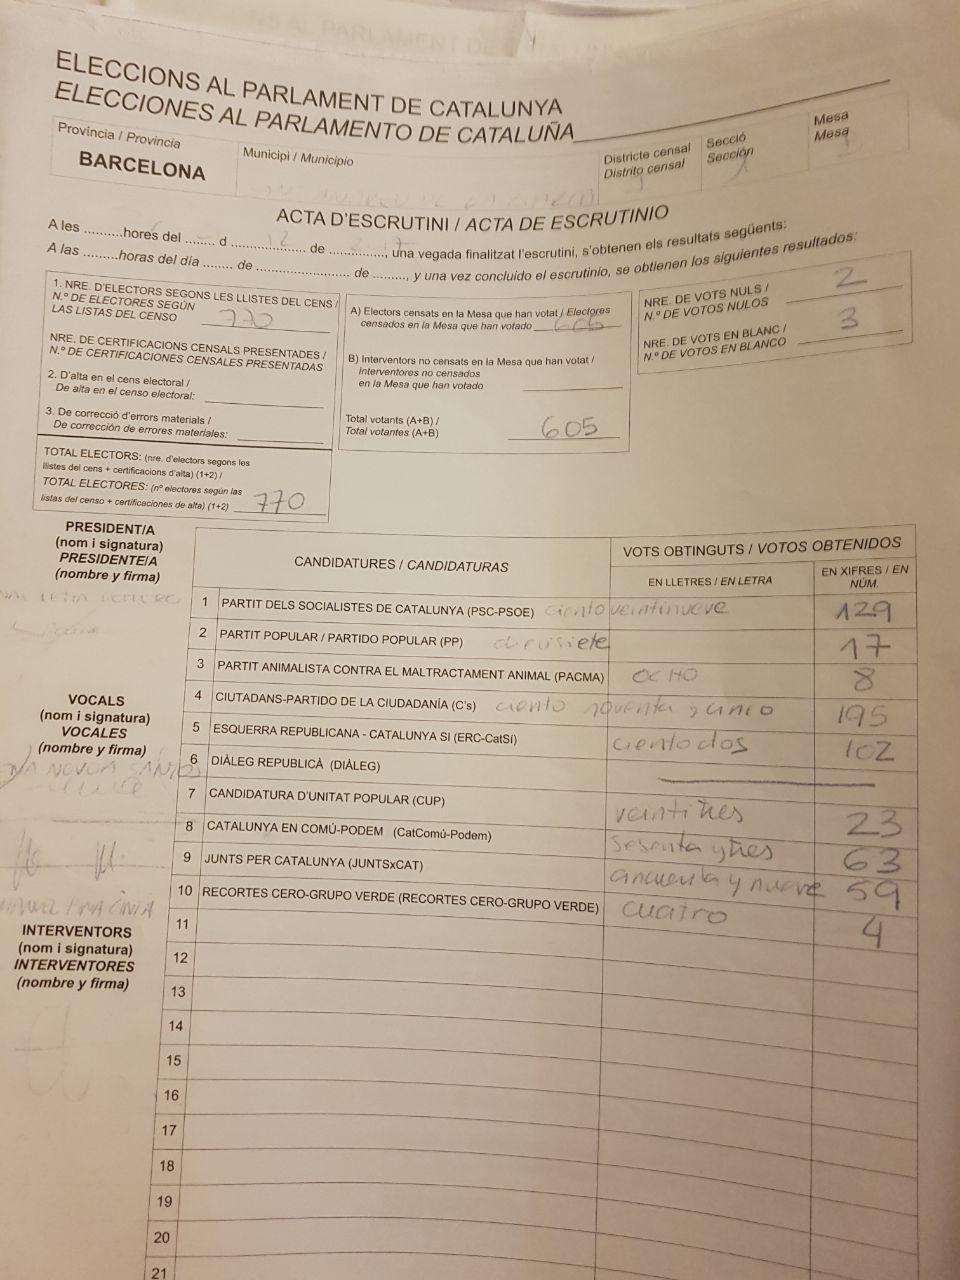 ELECCIONS AL PARLAMENT DE CATALUNYA
ELECCIONES AL PARLAMENTO DE CATALUÑA
Província / Provincia
BARCELONA
Municipi / Municipio
Districte censal
Distrito censal
Secció
Sección
1
Mesa
Mesa
ACTA D'ESCRUTINI / ACTA DE ESCRUTINIO
A les ..........hores del ........ d ......12...... de ....2017...., una vegada finalitzat l'escrutini, s'obtenen els resultats següents:
A las .........horas del día ........ de ......................... de ........., y una vez concluido el escrutinio, se obtienen los siguientes resultados:
1. NRE. D'ELECTORS SEGONS LES LLISTES DEL CENS /
N.º DE ELECTORES SEGÚN
LAS LISTAS DEL CENSO 770
NRE. DE CERTIFICACIONS CENSALS PRESENTADES /
N.º DE CERTIFICACIONES CENSALES PRESENTADAS
2. D'alta en el cens electoral /
De alta en el censo electoral:
3. De correcció d'errors materials /
De corrección de errores materiales:
TOTAL ELECTORS: (nre. d'electors segons les
llistes del cens + certificacions d'alta) (1+2) /
TOTAL ELECTORES: (nº electores según las
listas del censo + certificaciones de alta) (1+2) 770
A) Electors censats en la Mesa que han votat / Electores
censados en la Mesa que han votado
B) Interventors no censats en la Mesa que han votat /
Interventores no censados
en la Mesa que han votado
Total votants (A+B) /
Total votantes (A+B) 605
NRE. DE VOTS NULS /
N.º DE VOTOS NULOS 2
NRE. DE VOTS EN BLANC /
N.º DE VOTOS EN BLANCO 3
PRESIDENT/A
(nom i signatura)
PRESIDENTE/A
(nombre y firma)
VOCALS
(nom i signatura)
VOCALES
(nombre y firma)
INTERVENTORS
(nom i signatura)
INTERVENTORES
(nombre y firma)
CANDIDATURES / CANDIDATURAS
VOTS OBTINGUTS / VOTOS OBTENIDOS
EN LLETRES / EN LETRA
EN XIFRES / EN NÚM.
1 PARTIT DELS SOCIALISTES DE CATALUNYA (PSC-PSOE) ciento veintinueve 129
2 PARTIT POPULAR / PARTIDO POPULAR (PP) diecisiete 17
3 PARTIT ANIMALISTA CONTRA EL MALTRACTAMENT ANIMAL (PACMA) OCHO 8
4 CIUTADANS-PARTIDO DE LA CIUDADANÍA (C's) ciento noventa y cinco 195
5 ESQUERRA REPUBLICANA - CATALUNYA SI (ERC-CatSí) ciento dos 102
6 DIÀLEG REPUBLICÀ (DIÀLEG)
7 CANDIDATURA D'UNITAT POPULAR (CUP) veintitres 23
8 CATALUNYA EN COMÚ-PODEM (CatComú-Podem) sesenta y tres 63
9 JUNTS PER CATALUNYA (JUNTSxCAT) cincuenta y nueve 59
10 RECORTES CERO-GRUPO VERDE (RECORTES CERO-GRUPO VERDE) cuatro 4
11
12
13
14
15
16
17
18
19
20
21